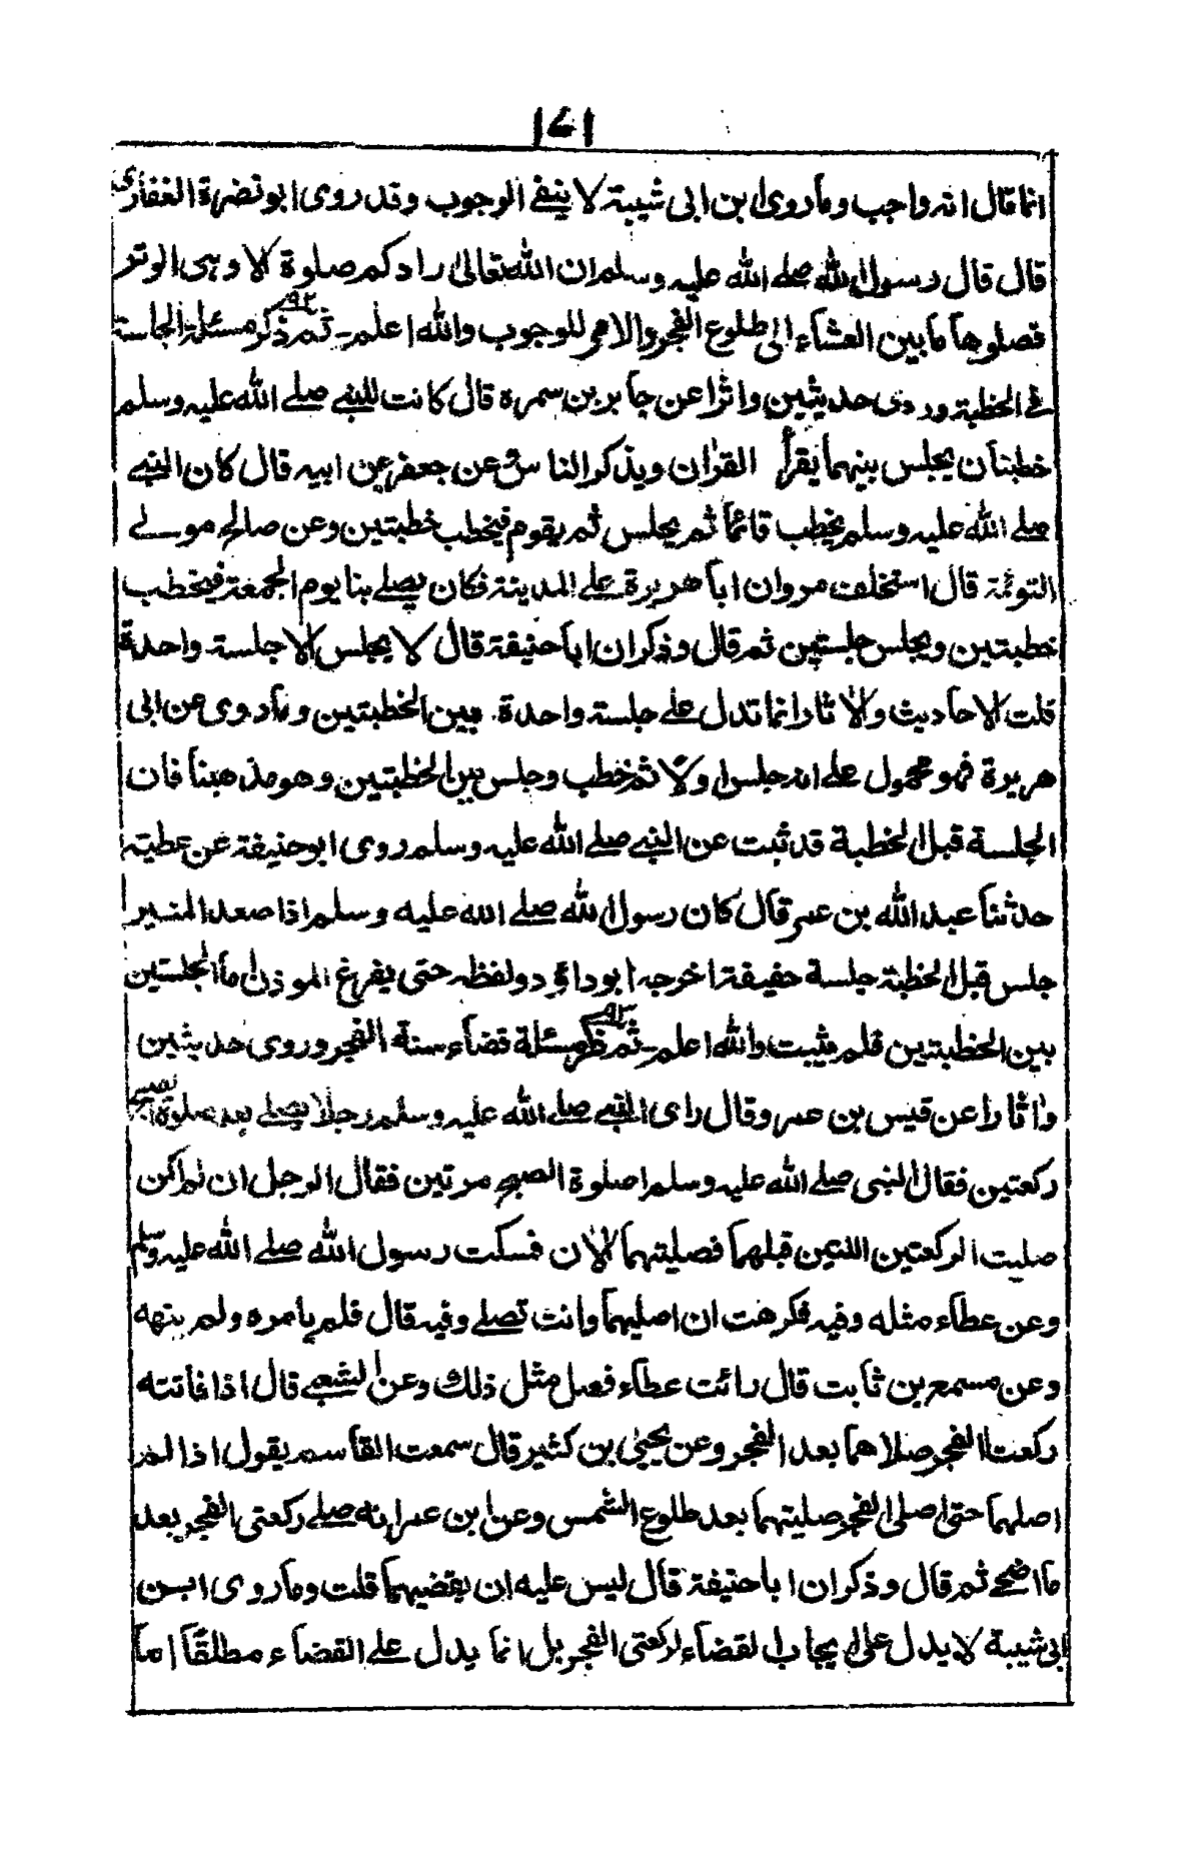 ١٧١
انما قال انه واجب وما روى ابن ابى شيبة لا ينفے الوجوب وقد روى ابو نضرة الغفارى
قال قال رسول الله صلے الله عليه وسلم ان الله تعالىٰ زادكم صلوة الا وهى الوتر
فصلوها ما بين العشاء الىٰ طلوع الفجر والامر للوجوب والله اعلم۔ ثم ذكر مسئلة الجلسة ٩٢
فے الخطبة وروى حديثين واثرا عن جابر بن سمرة قال كانت للنبے صلے الله عليه وسلم
خطبتان يجلس بينهما يقرأ القراٰن ويذكر الناس وعن جعفر عن ابيه قال كان النبے
صلے الله عليه وسلم يخطب قائما ثم يجلس ثم يقوم فيخطب خطبتين وعن صالح مولے
التوئمة قال استخلف مروان ابا هريرة علے المدينة فكان يصلے بنا يوم الجمعة فيخطب
خطبتين ويجلس جلستين ثم قال وذكر ان ابا حنيفة قال لا يجلس الا جلسة واحدة
قلت الاحاديث والاٰثار انما تدل علے جلسة واحدة بين الخطبتين وما روى عن ابى
هريرة فهو محمول علے انه جلس اولا ثم خطب وجلس بين الخطبتين وهو مذهبنا فان
الجلسة قبل الخطبة قد ثبت عن النبے صلے الله عليه وسلم روى ابو حنيفة عن عطية
حدثنا عبد الله بن عمر قال كان رسول الله صلے الله عليه وسلم اذا صعد المنبر
جلس قبل الخطبة جلسة خفيفة اخرجه ابو داؤد ولفظه حتى يفرغ الموذن اما الجلستين
بين الخطبتين فلم يثبت والله اعلم۔ ثم ذكر مسئلة قضاء سنة الفجر وروى حديثين ٩٣
واٰثارا عن قيس بن عمر وقال راى النبے صلے الله عليه وسلم رجلا يصلے بعد صلوة الصبح
ركعتين فقال النبى صلے الله عليه وسلم اصلوة الصبح مرتين فقال الرجل ان لم اكن
صليت الركعتين اللتين قبلهما فصليتهما الاٰن فسكت رسول الله صلے الله عليه وسلم
وعن عطاء مثله وفيه فكرهت ان اصليهما وانت تصلے وفيه قال فلم يامره ولم ينهه
وعن مسمع بن ثابت قال رائت عطاء فعل مثل ذلك وعن الشعبے قال اذا فاتته
ركعتا الفجر صلاهما بعد الفجر وعن يحيىٰ بن كثير قال سمعت القاسم يقول اذا لم
اصلهما حتى اصلى الفجر صليتهما بعد طلوع الشمس وعن ابن عمر انه صلے ركعتى الفجر بعد
ما اضحے ثم قال وذكر ان ابا حنيفة قال ليس عليه ان يقضيهما قلت وما روى ابن
ابى شيبة لا يدل على ايجاب القضاء لركعتى الفجر بل انما يدل علے القضاء مطلقًا اما